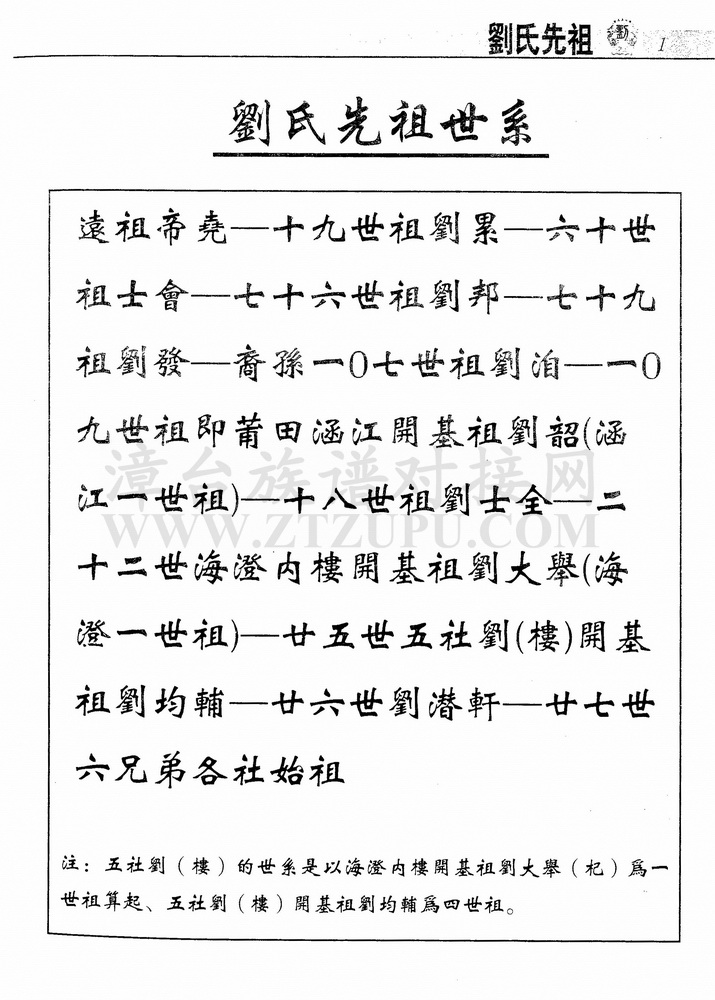 劉氏先祖 劉 1
劉氏先祖世系
遠祖帝堯—十九世祖劉累—六十世
祖士會—七十六世祖劉邦—七十九
祖劉發—裔孫一0七世祖劉洎—一0
九世祖即莆田涵江開基祖劉韶(涵
江一世祖)—十八世祖劉士全—二
十二世海澄内樓開基祖劉大舉(海
澄一世祖)—廿五世五社劉(樓)開基
祖劉均輔—廿六世劉潜軒—廿七世
六兄弟各社始祖
漳台族谱对接网
WWW.ZTZUPU.COM
注：五社劉（樓）的世系是以海澄内樓開基祖劉大舉（杞）爲一
世祖算起、五社劉（樓）開基祖劉均輔爲四世祖。